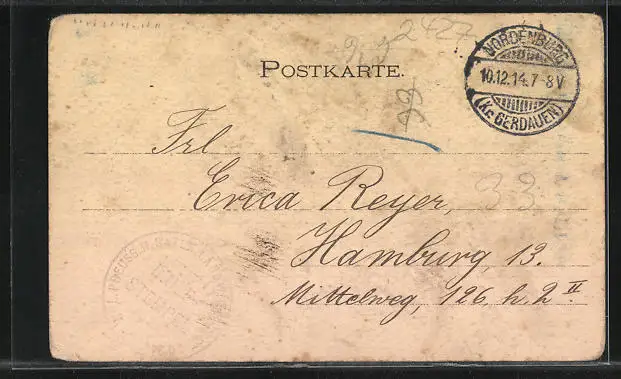 2427
POSTKARTE.
NORDENBURG
10.12.14.7-8V
(Kr. GERDAUEN)
Frl
Erica Reyer,
33
Hamburg 13.
Mittelweg, 126, h. 2 II